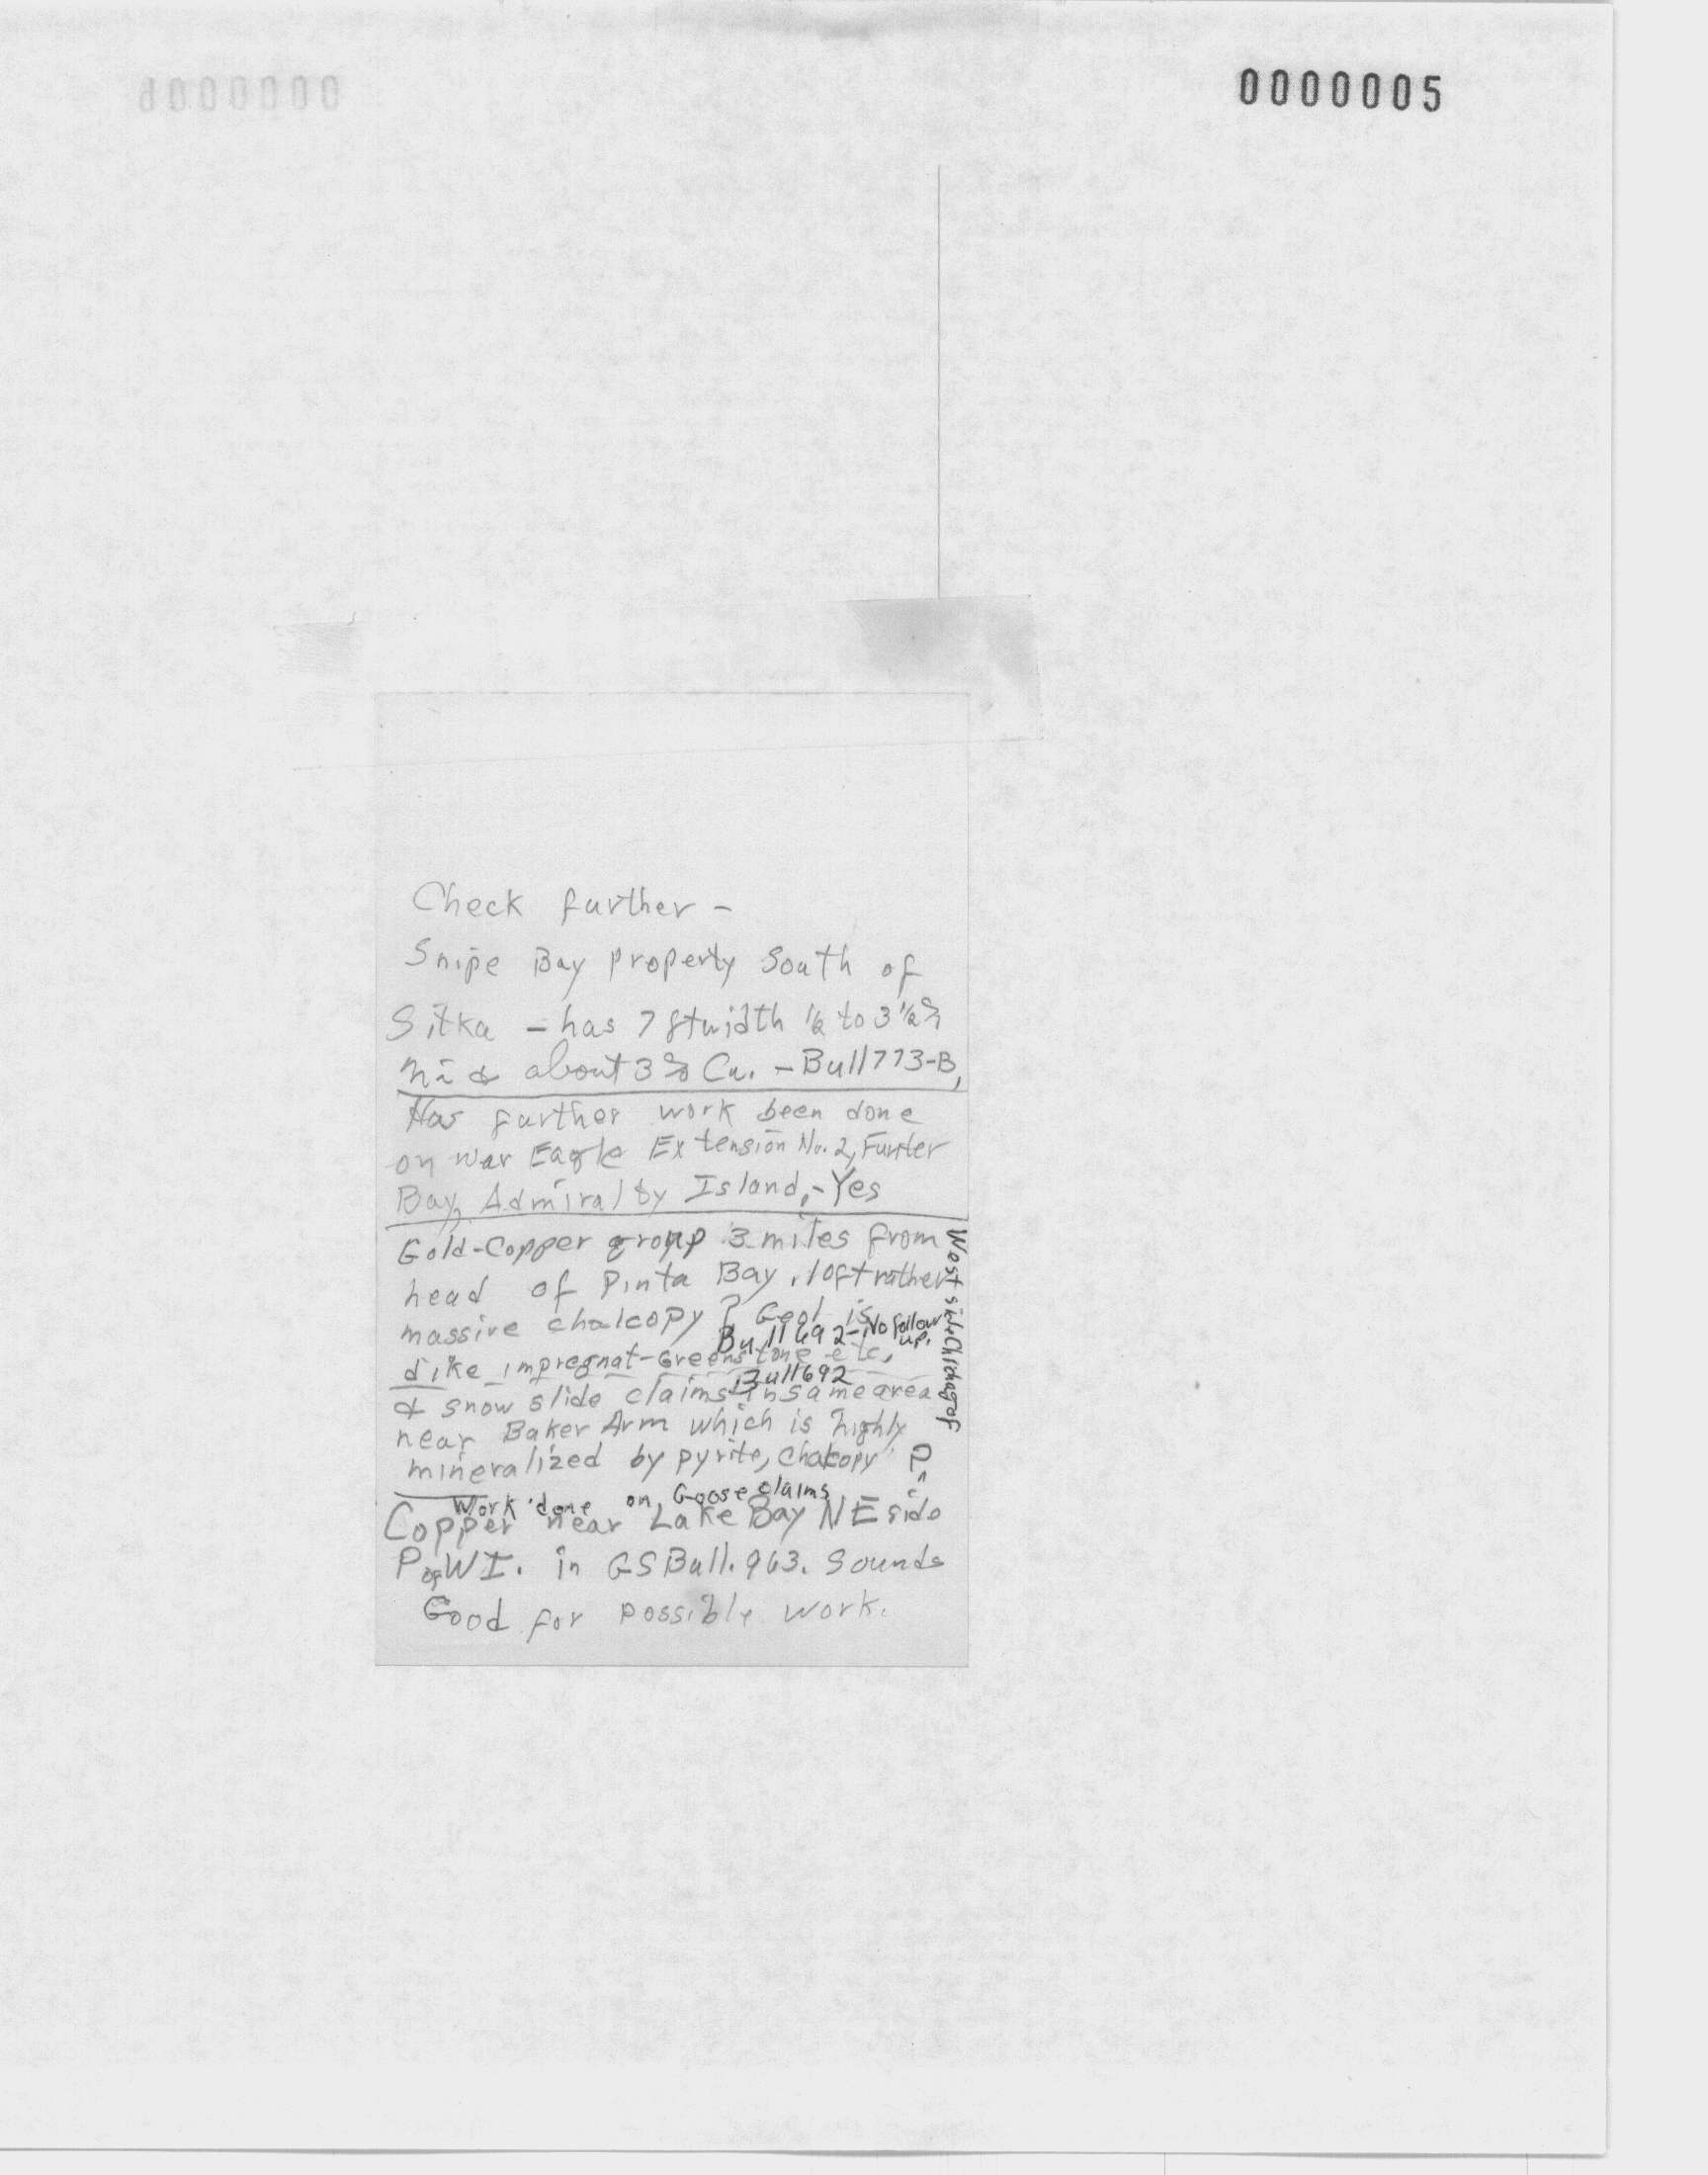 0000005
Check further -
Snipe Bay property South of
Sitka - has 7 ft width 1/2 to 3 1/2 %
Ni & about 3% Cu. - Bull 773-B,
Has further work been done
on War Eagle Extension No. 2, Funter
Bay, Admiralty Island, - Yes
Gold-Copper group 3 miles from
head of Pinta Bay, 10ft rather
massive chalcopy ? Geol is
Bull 692 - No follow up.
dike impregnat - Greenstone etc,
Bull 692
& snow slide claims in same area
near Baker Arm which is highly
mineralized by pyrite, chalcopy
West side Chichagof
Work done on Goose claims
Copper near Lake Bay NE side
P of W I. in GS Bull. 963. Sounds
Good for possible work.